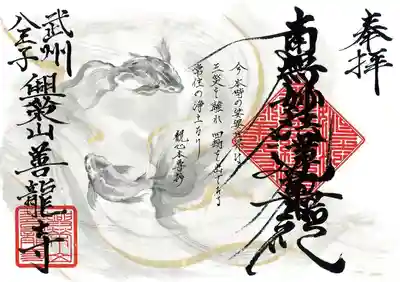 奉拝
南無妙法蓮華経
今本時の娑婆世界は
三災を離れ四劫を出でたる
常住の浄土なり
観心本尊抄
武州
八王子
興榮山善龍寺